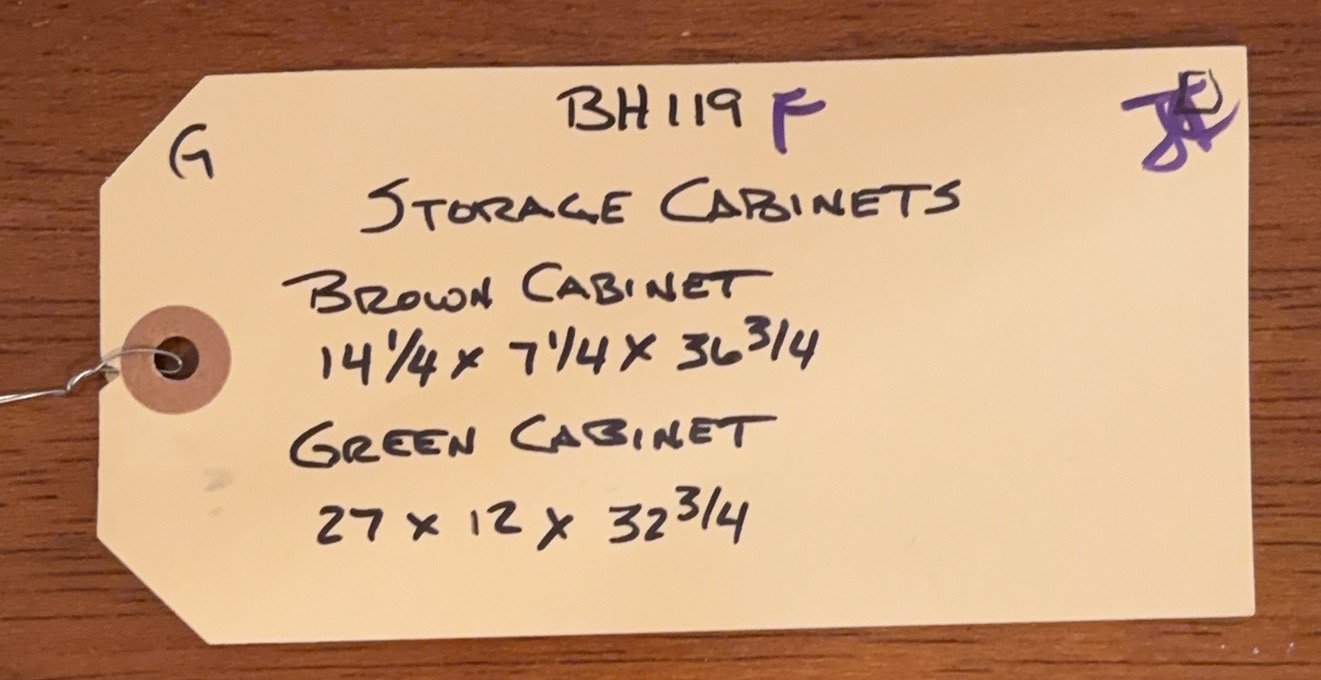 BH119 F
G
STORAGE CABINETS
BROWN CABINET
14 1/4 x 7 1/4 x 36 3/4
GREEN CABINET
27 x 12 x 32 3/4